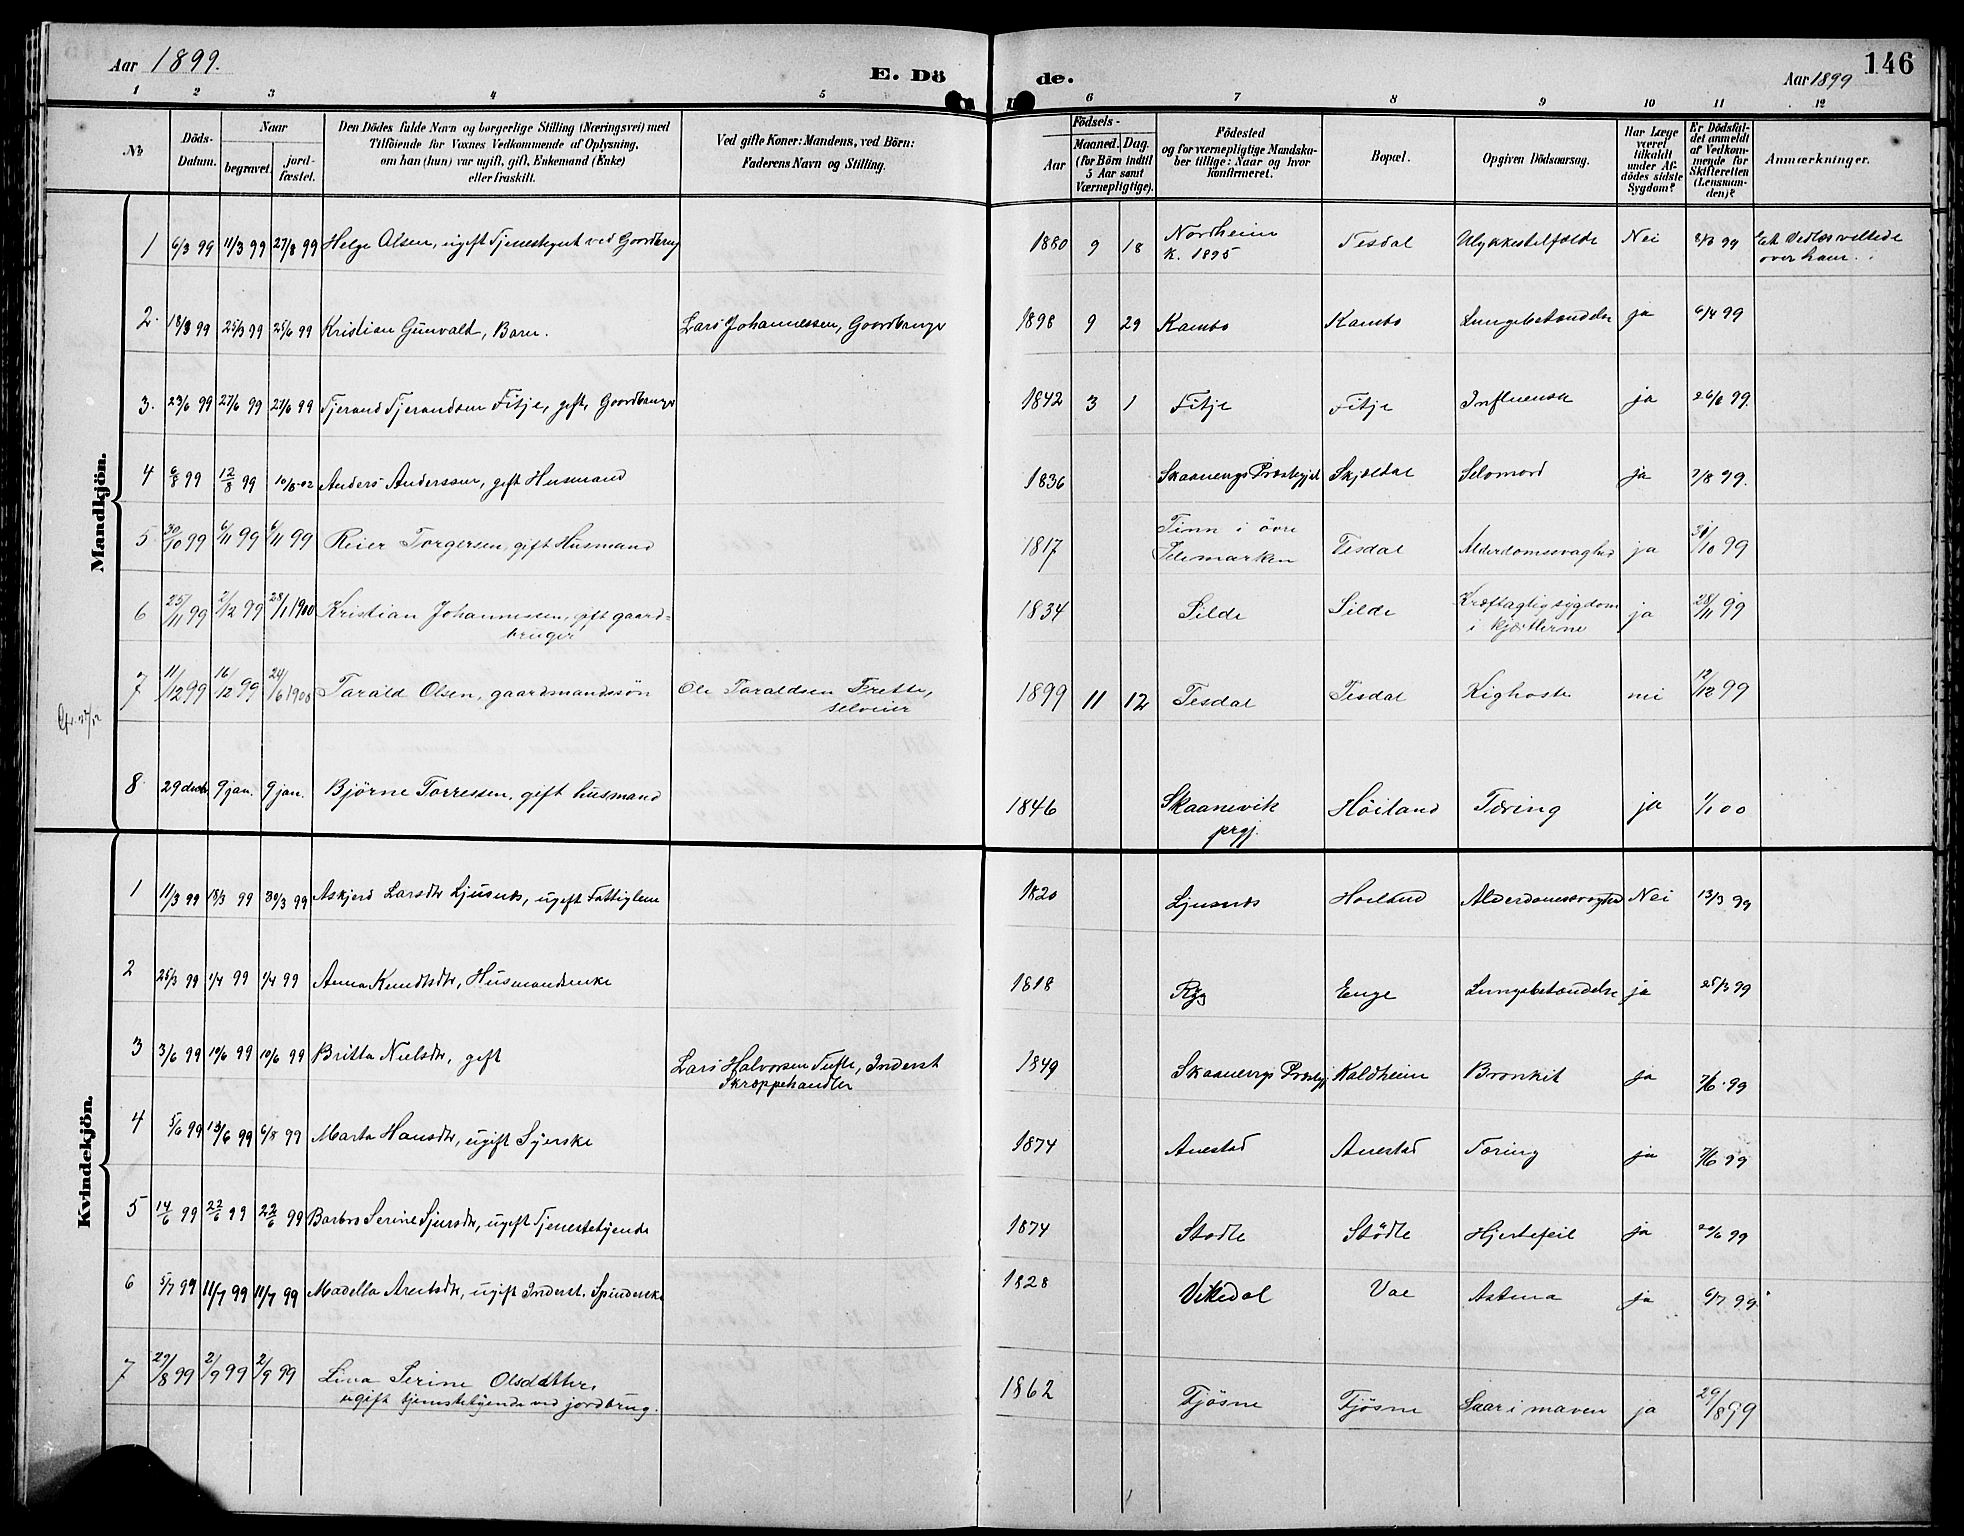 Aar 1899.
E. Dö de.
Aar 1899
146
1 2 3 4 5 6 7 8 9 10 11 12
No
Döds-Datum.
Naar
begravet.
jord-fæstet.
Den Dödes fulde Navn og borgerlige Stilling (Næringsvei) med
Tilföiende for Voxnes Vedkommende af Oplysning,
om han (hun) var ugift, gift, Enkemand (Enke)
eller fraskilt.
Ved gifte Koner: Mandens, ved Börn:
Faderens Navn og Stilling.
Födsels-
Aar
Maaned. Dag.
(for Börn indtil
5 Aar samt
Værnepligtige).
Födested
og for værnepligtige Mandska-
ber tillige: Naar og hvor
konfirmeret.
Bopæl.
Opgiven Dödsaarsag.
Har Læge
været
tilkaldt
under Af-
dödes sidste
Sygdom?
Er Dödsfal-
det anmeldt
af Vedkom-
mende for
Skifteretten
(Lensman-
den)?
Anmærkninger.
Mandkjön.
1 6/3 99 11/3 99 27/8 99 Helge Olsen, ugift Tjenestegut ved Goordbrug 1880 9 18 Nordheim Tesdal Ulykkestilfælde Nei 8/3 99 Et Vedlæs veltede
k. 1895 over ham.
2. 18/3 99 25/3 99 25/6 99 Kristian Gunvald, Barn. Lars Johannessen, Goordbruger 1898 9 29 Kambo Kambo Lungebetændelse ja 6/4 99
3. 23/6 99 27/6 99 27/6 99 Tjerand Tjerandsen Fitje, gift, Goordbruger 1842 3 1 Fitje Fitje Influensa ja 26/6 99.
4 6/8 99 12/8 99 10/8-02 Anders Anderssen, gift Husmand 1836 Skaanevigs Præstegjel Skjoldal Selvmord ja 7/8 99.
5 30/10 99 6/11 99 6/11 99 Reier Torgersen, gift Husmand 1817 Tinn i övre Tesdal Alderdomssvaghed ja 31/10 99
Telemarken
6 25/11 99 2/12 99 28/1 1900 Kristian Johannessen, gift gaard- 1834 Silde Silde Kræftagtig sygdom ja 28/11 99
bruger i kjærtlerne
7 11/12 99 16/12 99 24/6 1900 Tarald Olsen, gaardmandssön Ole Taraldsen Frette, 1899 11 12 Tesdal Tesdal Kighoste nei 12/12 99
selveier
8 29 decbr 9 jan. 9 jan. Björne Torressen, gift husmand 1846 Skaanevik Höiland Tæring ja 1/1 00
prgj.
Kvindekjön.
1 11/3 99 18/3 99 30/3 99 Askjerd Larsdtr Ljusnes, ugift Fattiglem 1820 Ljusnes Hoiland Alderdomssvaghed Nei 13/3 99
2 25/3 99 1/4 99 1/4 99 Anna Knudtsdtr, Husmandsenke 1818 Enge Lungebetændelse ja 25/3 99
3 3/6 99 10/6 99 10/6 99 Britta Nielsdtr, gift Lars Halvorsen Tufte, Inderst 1849 Skaanevigs Præstegj Kaldheim Bronkit ja 7/6 99
Skræppehandler
4 5/6 99 13/6 99 6/8 99 Marta Hansdtr, ugift Syerske 1874 Anestad Anestad Tæring ja 7/6 99
5 14/6 99 22/6 99 22/6 99 Barbro Serine Sjursdtr, ugift Tjenestetjende 1874 Stodle Stödle Hjertefeil ja 20/6 99
6 5/7 99 11/7 99 11/7 99 Madella Arentsdtr, ugift Inderst. Spinderske 1828 Vikedal Vae Astma ja 6/7 99
7 29/8 99 2/9 99 2/9 99 Lina Serine Olsdatter, 1862 Tjösne Tjösne Saar i maven ja 29/8 99
ugift tjenestetjende ved jordbrug.